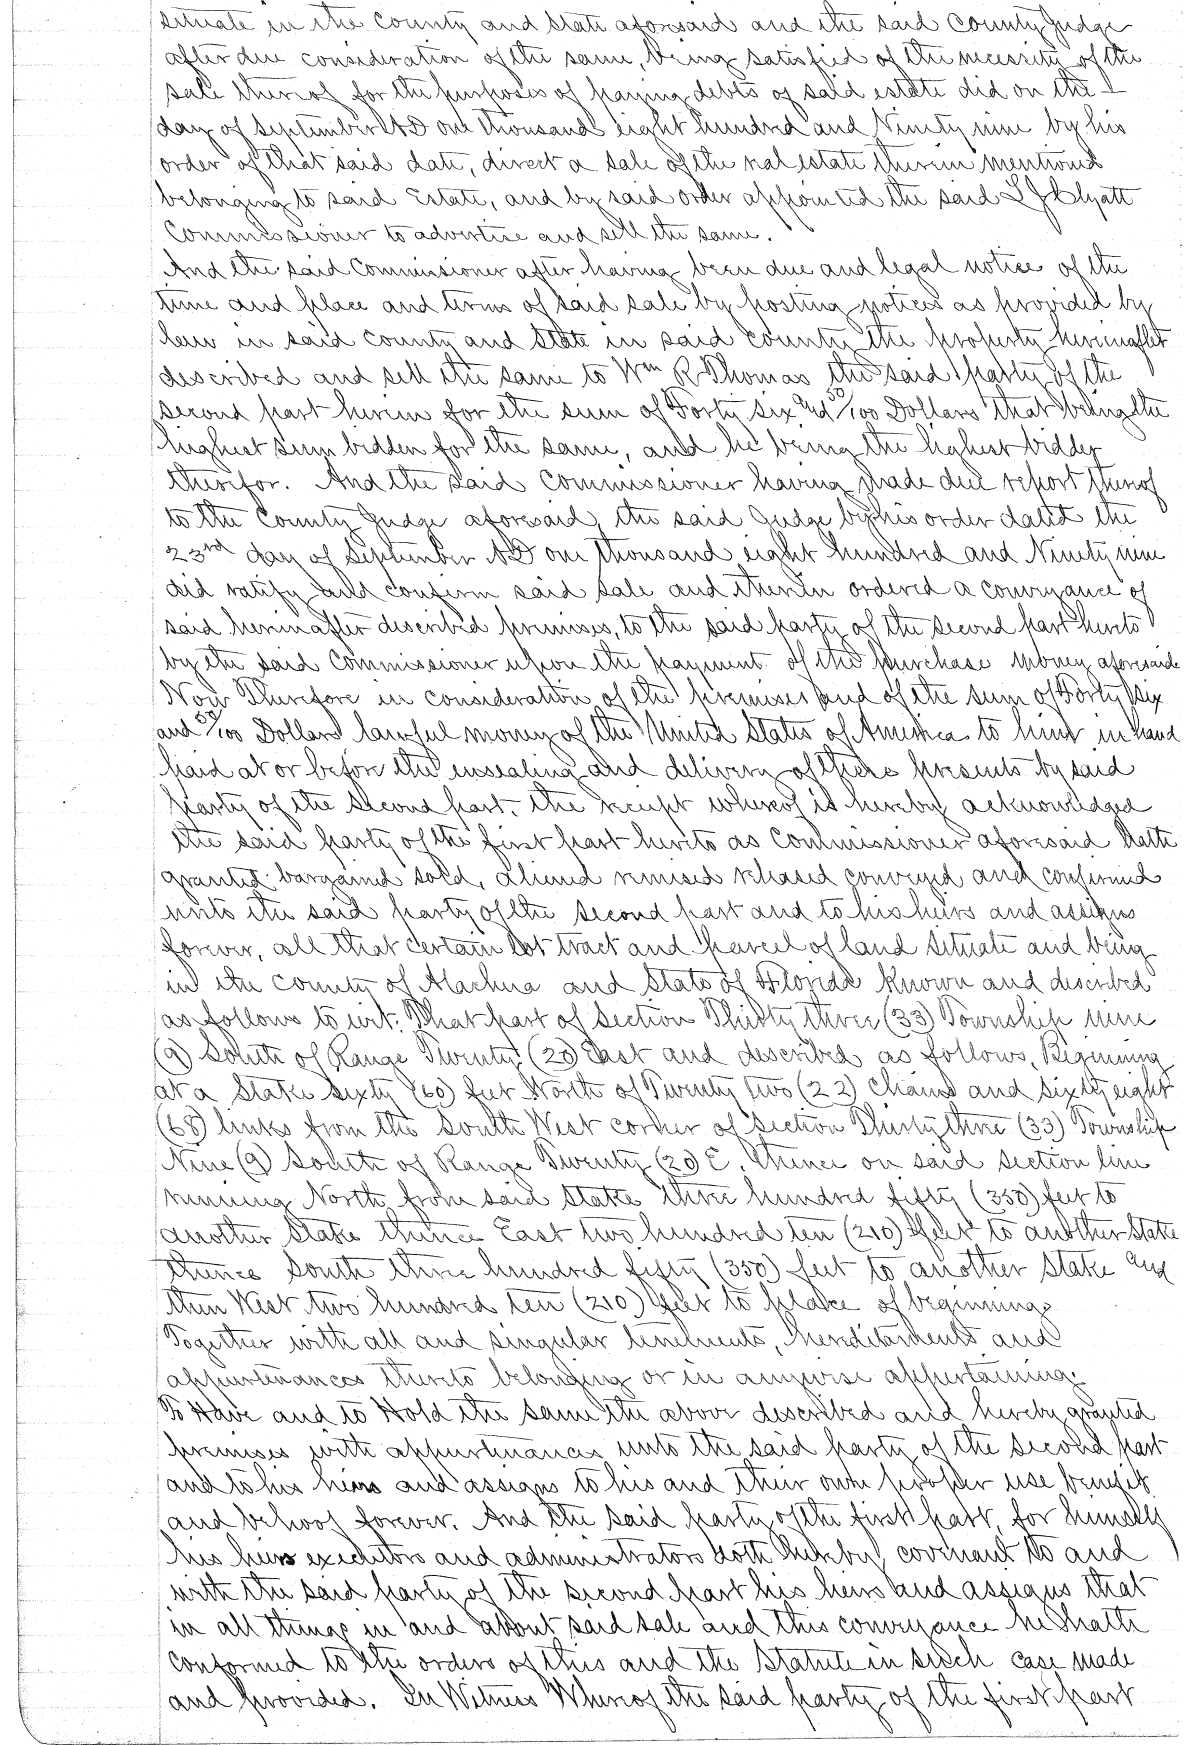 situate in the County and State aforesaid and the said County Judge
after due consideration of the same, being satisfied of the necessity of the
sale thereof for the purposes of paying debts of said estate did on the 1
day of September AD one thousand eight hundred and Ninety nine by his
order of that said date, direct a sale of the real estate therein mentioned
belonging to said Estate, and by said order appointed the said L J Clyatt
Commissioner to advertise and sell the same.
And the said Commissioner after having been due and legal notice of the
time and place and terms of said sale by posting notices as provided by
law in said county and State in said county the property hereinafter
described and sell the same to Wm R Thomas the said party of the
second part herein for the sum of Forty six and 50/100 Dollars that being the
highest sum bidden for the same, and he being the highest bidder
therefor. And the said Commissioner having made due report thereof
to the County Judge aforesaid, the said Judge by his order dated the
23rd day of September AD one thousand eight hundred and Ninety nine
did ratify and confirm said sale and therein ordered a conveyance of
said hereinafter described premises, to the said party of the second part hereto
by the said Commissioner upon the payment of the purchase money aforesaid
Now Therefore in consideration of the premises and of the sum of Forty six
and 50/100 Dollars lawful money of the United States of America to him in hand
paid at or before the ensealing and delivery of these presents by said
party of the second part, the receipt whereof is hereby acknowledged
the said party of the first part hereto as Commissioner aforesaid hath
granted bargained sold, aliened remised released conveyed and confirmed
unto the said party of the second part and to his heirs and assigns
forever, all that certain lot tract and parcel of land situate and being
in the County of Alachua and State of Florida known and described
as follows to wit: That part of Section Thirty three (33) Township nine
(9) South of Range Twenty (20) East and described as follows, Beginning
at a Stake sixty (60) feet North of Twenty two (22) chains and sixty eight
(68) links from the South West corner of Section Thirty three (33) Township
Nine (9) South of Range Twenty (20) E. thence on said section line
running North from said Stake three hundred fifty (350) feet to
another Stake thence East two hundred ten (210) feet to another Stake
thence South three hundred fifty (350) feet to another Stake and
then West two hundred ten (210) feet to place of beginning.
Together with all and singular tenements, hereditaments and
appurtenances thereto belonging or in anywise appertaining.
To Have and to Hold the same the above described and hereby granted
premises with appurtenances unto the said party of the second part
and to his heirs and assigns to his and their own proper use benefit
and behoof forever. And the said party of the first part, for himself
his heirs executors and administrators doth hereby covenant to and
with the said party of the second part his heirs and assigns that
in all things in and about said sale and this conveyance he hath
conformed to the orders of this and the Statute in such case made
and provided. In Witness Whereof the said party of the first part